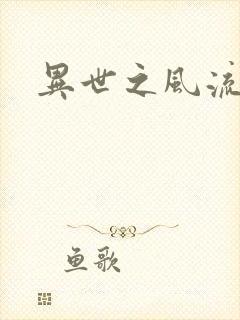 異世之風流
鱼歌